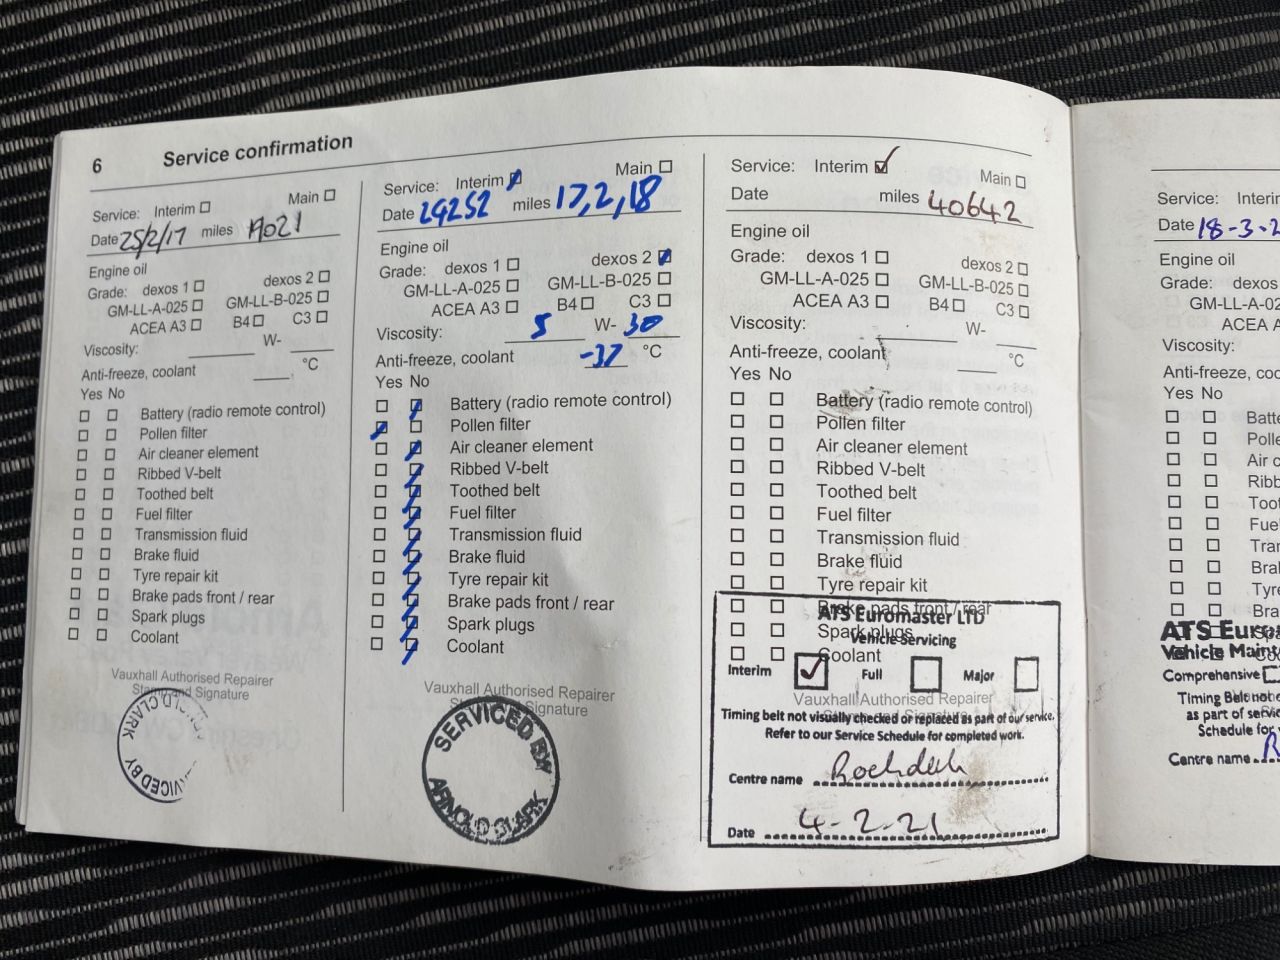 6 Service confirmation
Service: Interim Main
Date 25/2/17 miles
Engine oil
Grade: dexos 1 dexos 2
GM-LL-A-025 GM-LL-B-025
ACEA A3 B4 C3
Viscosity: W-
Anti-freeze, coolant °C
Yes No
Battery (radio remote control)
Pollen filter
Air cleaner element
Ribbed V-belt
Toothed belt
Fuel filter
Transmission fluid
Brake fluid
Tyre repair kit
Brake pads front / rear
Spark plugs
Coolant
Vauxhall Authorised Repairer
Stamp and Signature
Service: Interim Main
Date 29252 miles 17,2,18
Engine oil
Grade: dexos 1 dexos 2
GM-LL-A-025 GM-LL-B-025
ACEA A3 B4 C3
Viscosity: 5 W- 30
Anti-freeze, coolant -37 °C
Yes No
Battery (radio remote control)
Pollen filter
Air cleaner element
Ribbed V-belt
Toothed belt
Fuel filter
Transmission fluid
Brake fluid
Tyre repair kit
Brake pads front / rear
Spark plugs
Coolant
Vauxhall Authorised Repairer
Signature
SERVICED BY
ARNOLD CLARK
Service: Interim Main
Date miles 40642
Engine oil
Grade: dexos 1 dexos 2
GM-LL-A-025 GM-LL-B-025
ACEA A3 B4 C3
Viscosity: W-
Anti-freeze, coolant °C
Yes No
Battery (radio remote control)
Pollen filter
Air cleaner element
Ribbed V-belt
Toothed belt
Fuel filter
Transmission fluid
Brake fluid
Tyre repair kit
Brake pads front / rear
ATS Euromaster LTD
Spark plugs
Vehicle Servicing
Coolant
Interim Full Major
Vauxhall Authorised Repairer
Timing belt not visually checked or replaced as part of our service.
Refer to our Service Schedule for completed work.
Centre name Rochdale
Date 4-2-21
Service:
Date 18-3-2
Engine oil
Grade: dexos
ACEA
Viscosity:
Yes No
ATS
Vehicle
Comprehensive
Timing Belt
as part of
Schedule for
Centre name